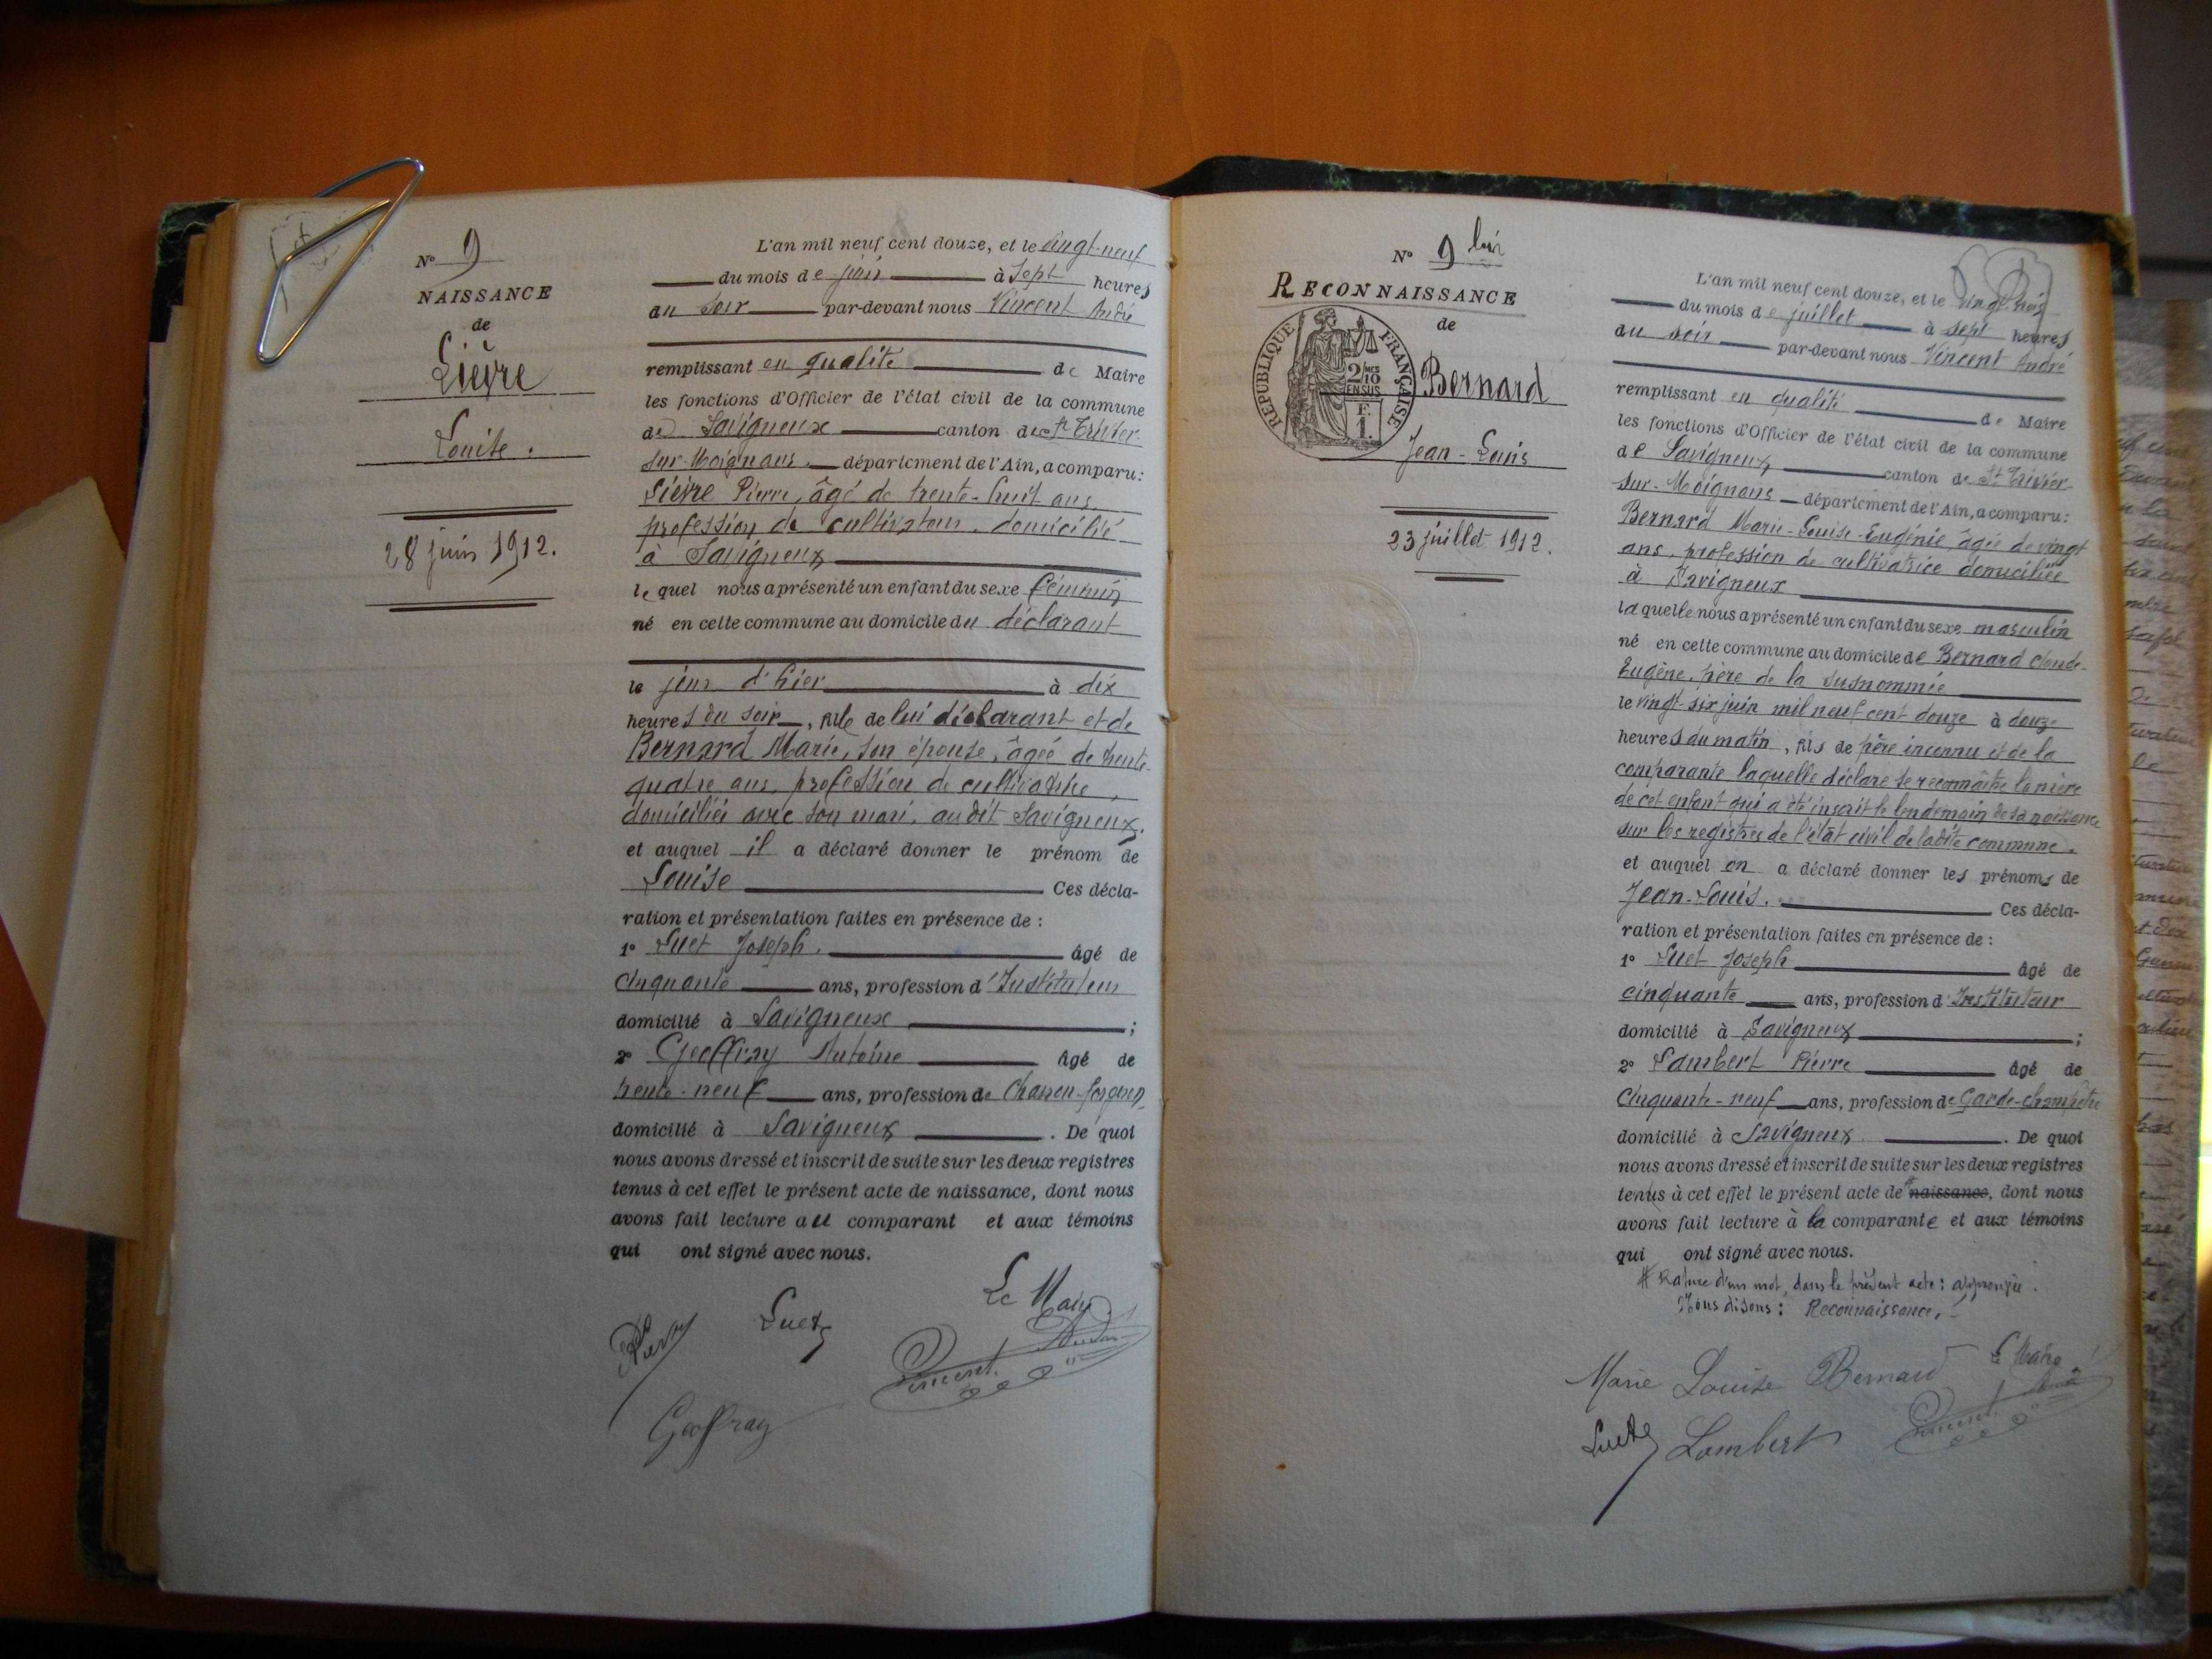 N° 9
NAISSANCE
de
Lièvre
Louise.
28 juin 1912.
L'an mil neuf cent douze, et le vingt-neuf
du mois de juin à sept heures
du soir par-devant nous Vincent André
remplissant en qualité de Maire
les fonctions d'Officier de l'état civil de la commune
de Savigneux canton de St Trivier-
sur-Moignans département de l'Ain, a comparu:
Lièvre Pierre, âgé de trente-huit ans
profession de cultivateur, domicilié
à Savigneux
lequel nous a présenté un enfant du sexe féminin
né en cette commune au domicile du déclarant
le jour d'hier à dix
heures du soir, fille de lui déclarant et de
Bernard Marie, son épouse, âgée de trente-
quatre ans, profession de cultivatrice,
domiciliée avec son mari, audit Savigneux.
et auquel il a déclaré donner le prénom de
Louise Ces décla-
ration et présentation faites en présence de :
1° Suet Joseph. âgé de
cinquante ans, profession d'Instituteur
domicilié à Savigneux ;
2° Geoffray Antoine âgé de
trente-neuf ans, profession de Charron-forgeron,
domicilié à Savigneux . De quoi
nous avons dressé et inscrit de suite sur les deux registres
tenus à cet effet le présent acte de naissance, dont nous
avons fait lecture au comparant et aux témoins
qui ont signé avec nous.
Le Maire
Suet
Vincent André
Geoffray
N° 9 bis
RECONNAISSANCE
de
RÉPUBLIQUE FRANÇAISE
2/10 MES
EN SUS
F.
1.
Bernard
Jean-Louis
23 juillet 1912.
L'an mil neuf cent douze, et le vingt-trois
du mois de juillet à sept heures
au soir par-devant nous Vincent André
remplissant en qualité de Maire
les fonctions d'Officier de l'état civil de la commune
de Savigneux canton de St Trivier-
sur-Moignans département de l'Ain, a comparu:
Bernard Marie-Louise-Eugénie, âgée de vingt
ans, profession de cultivatrice domiciliée
à Savigneux
laquelle nous a présenté un enfant du sexe masculin
né en cette commune au domicile de Bernard Claude-
Eugène, père de la susnommée
le vingt-six juin mil neuf cent douze à douze
heures du matin, fils de père inconnu et de la
comparante laquelle déclare se reconnaître la mère
de cet enfant qui a été inscrit le lendemain de sa naissance
sur les registres de l'état civil de ladite commune.
et auquel on a déclaré donner les prénoms de
Jean-Louis. Ces décla-
ration et présentation faites en présence de :
1° Suet Joseph âgé de
cinquante ans, profession d'Instituteur
domicilié à Savigneux ;
2° Lambert Pierre âgé de
Cinquante-neuf ans, profession de Garde-champêtre
domicilié à Savigneux . De quoi
nous avons dressé et inscrit de suite sur les deux registres
tenus à cet effet le présent acte de naissance, dont nous
avons fait lecture à la comparante et aux témoins
qui ont signé avec nous.
# Rature d'un mot, dans le présent acte: approuvée.
Nous disons: Reconnaissance.
Marie Louise Bernard Le Maire
Suet Lambert Vincent André